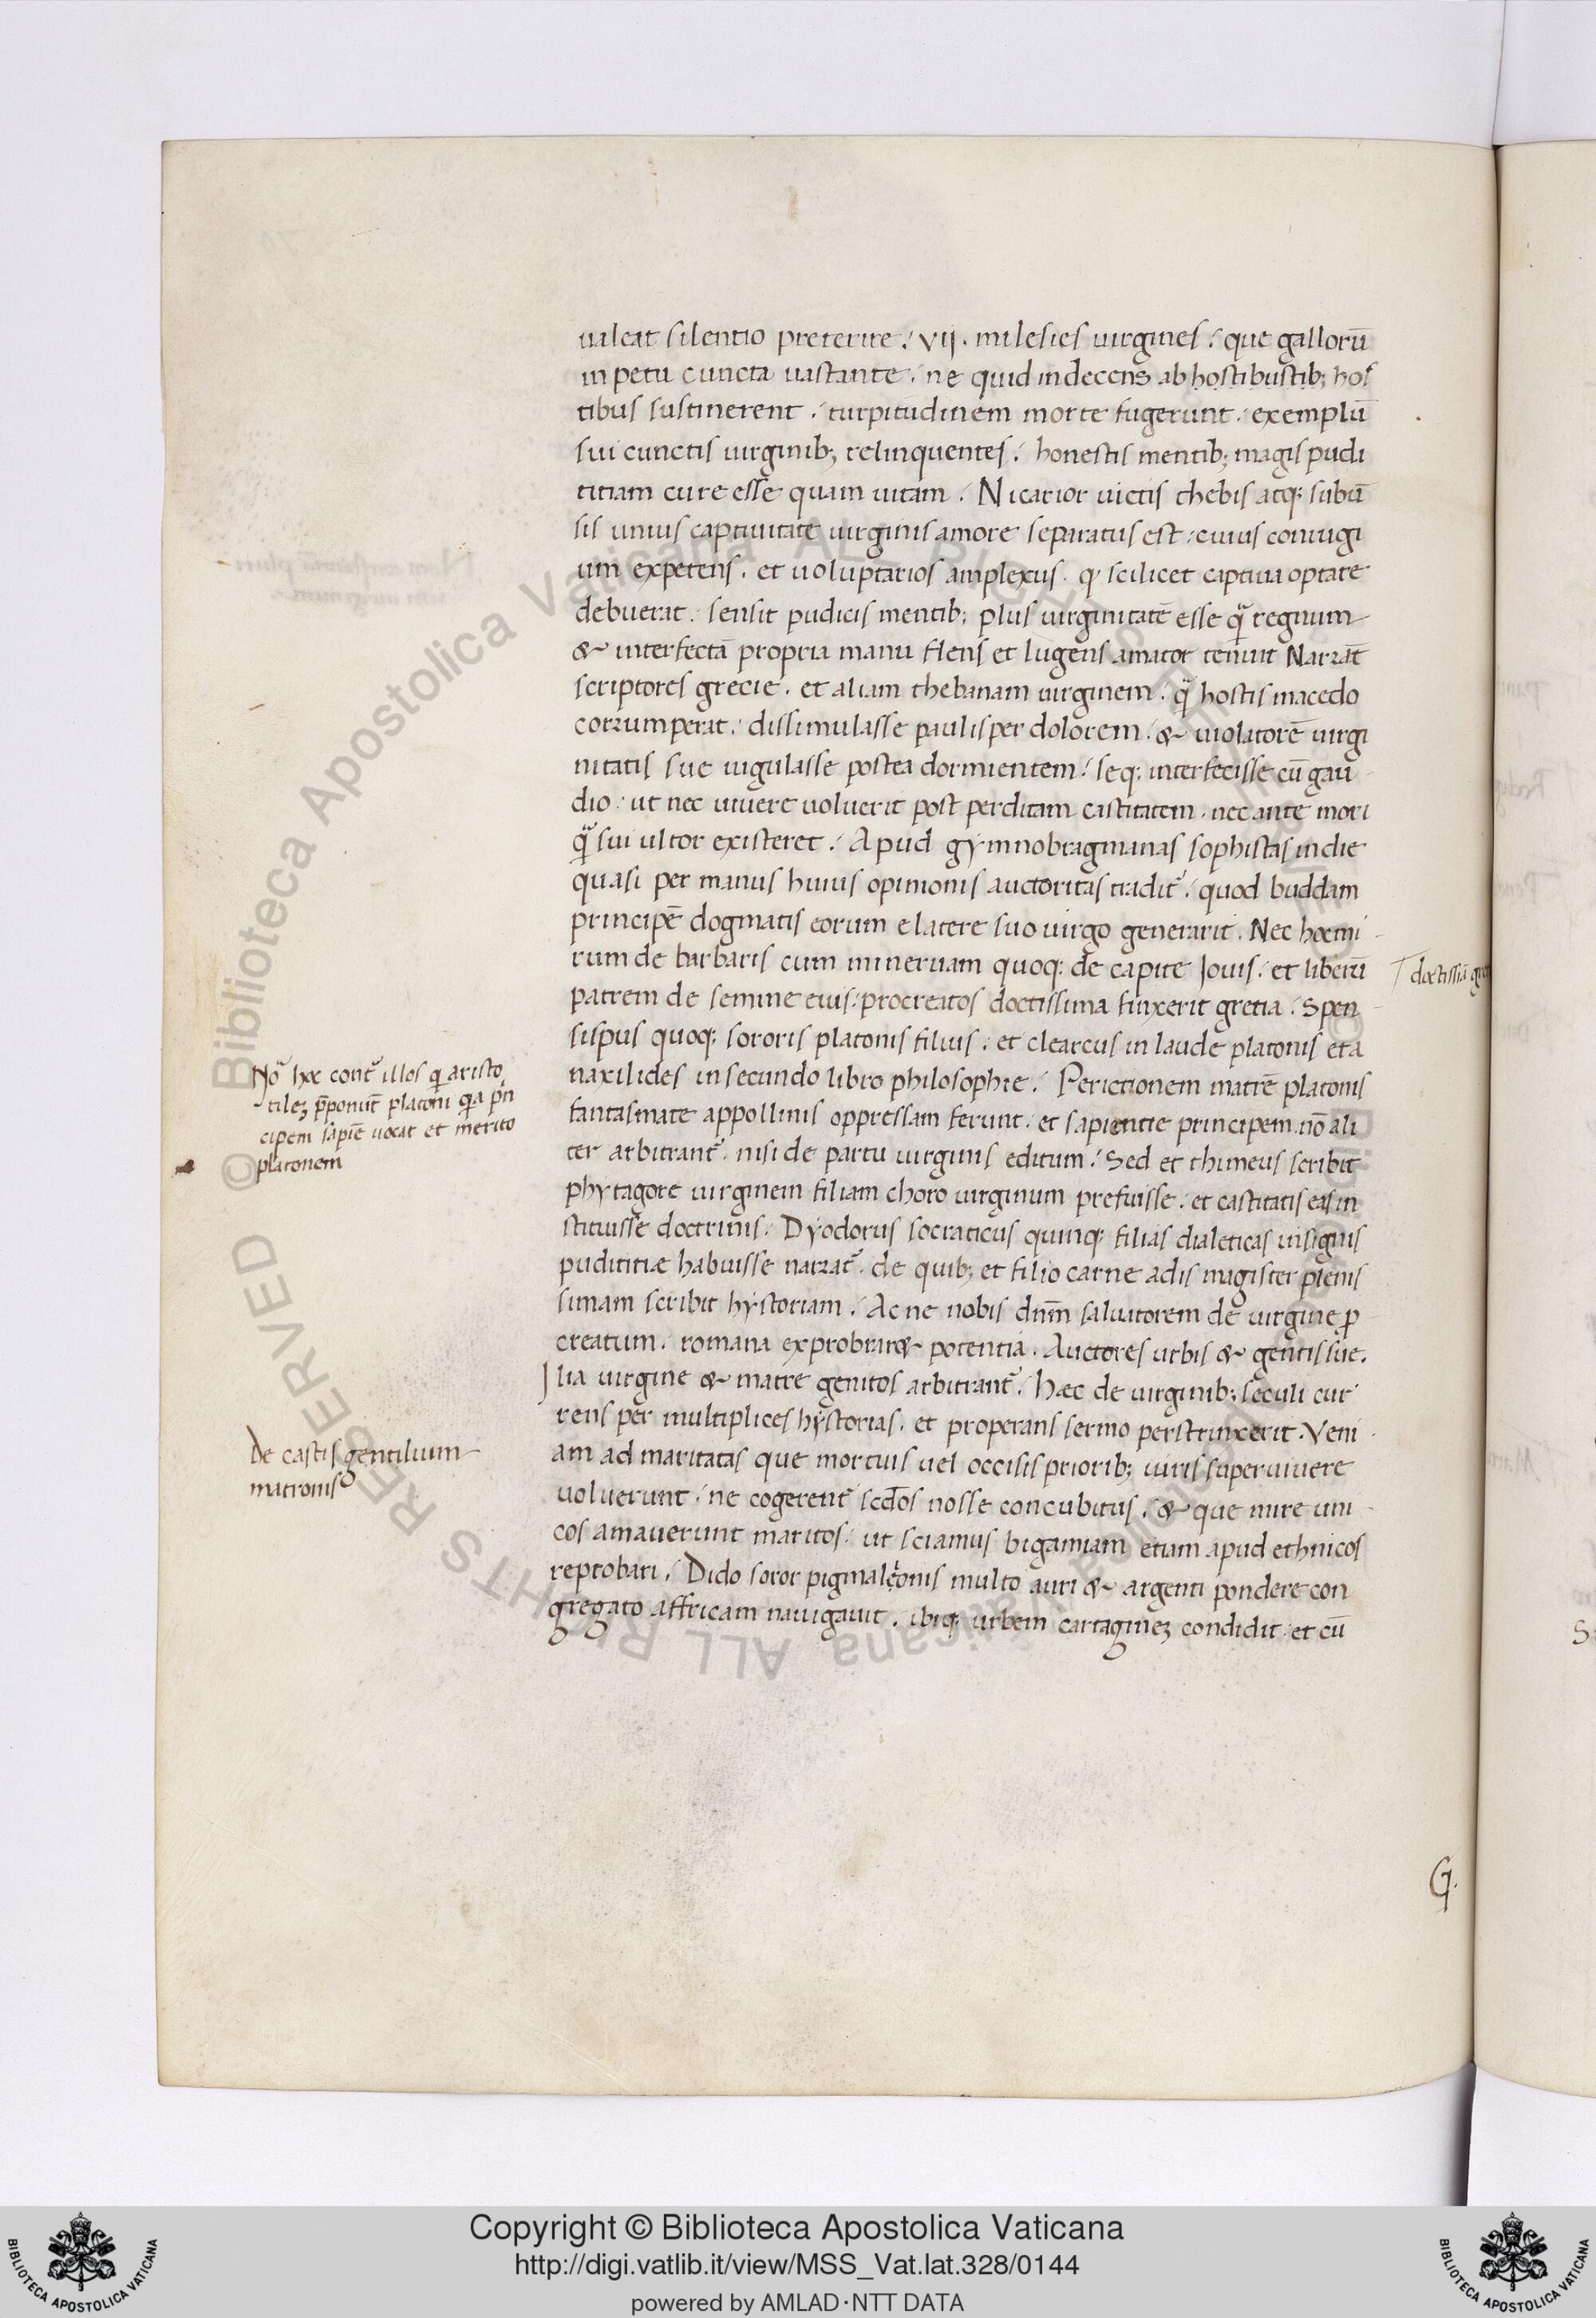 ualeat silentio preterire. vij. milesies uirgines. que gallorū
inpetu cuncta uastante. ne quid indecens ab hostibustib; hos
tibus sustinerent. turpitudinem morte fugerunt. exemplū
sui cunctis uirginib; relinquentes. honestis mentib; magis pudi
titiam cure esse quam uitam. Nicarior uictis thebis atq; subū
sis unius captiuitate uirginis amore separatus est. cuius coniugi
um expetens. et uoluptarios amplexus. scilicet captiua optare
debuerat. sensit pudicis mentib; plus uirginitatē esse regnum
& interfectā propria manu flens et lugens amator tenuit Narrāt
scriptores grecie. et aliam thebanam uirginem. hostis macedo
corrumperat. dissimulasse paulisper dolorem. & uiolatorē uirgi
nitatis sue iugulasse postea dormientem. seq; interfecisse cū gau
dio. ut nec uiuere uoluerit post perditam castitatem. nec ante mori
sui ultor existeret. Apud gymnobragmanas sophistas indie
quasi per manus huius opinionis auctoritas tradit̃. quod buddam
principē dogmatis eorum e latere suo uirgo generarit. Nec hoc mi
rum de barbaris cum mineruam quoq; de capite Iouis. et liberū
patrem de semine eius. procreatos doctissima finxerit gretia. Speu
sispus quoq; sororis platonis filius. et clearcus in laude platonis et a
naxilides in secundo libro philosophie. Perictionem matrē platonis
fantasmate appollinis oppressam ferunt. et sapientie principem nō ali
ter arbitrant̃. nisi de partu uirginis editum. Sed et thimeus scribit
phytagore uirginem filiam choro uirginum prefuisse. et castitatis eas in
stituisse doctrinis. Dyodorus socraticus quinq; filias dialeticas insignis
pudititiæ habuisse narrat̃. de quib; et filio carne adis magister plenis
simam scribit hystoriam. Ac ne nobis dnm̄ saluatorem de uirgine ꝓ
creatum. romana exprobrar& potentia. Auctores urbis & gentis sue.
Ilia uirgine & matre genitos arbitrant̃. Hæc de uirginib; seculi cur
rens per multiplices hystorias. et properans sermo perstrinxerit. Veni
am ad maritatas que mortuis uel occisis priorib; uiris superuiuere
uoluerunt. ne cogerent̃ scdos nosse concubitus. & que mire uni
cos amauerunt maritos. ut sciamus bigamiam etiam apud ethnicos
reprobari. Dido soror pigmalionis multo auri & argenti pondere con
gregato affricam nauigauit. ibiq; urbem cartaginez condidit. et cū
doctissīa
No hæc cont̃ illos aristo
tilez p̄ponūt platoni pn
cipem sapiē uocat et merito
platonem
De castis gentilium
matronis
G.
© Biblioteca Apostolica Vaticana ALL RIGHTS RESERVED
Copyright © Biblioteca Apostolica Vaticana
http://digi.vatlib.it/view/MSS_Vat.lat.328/0144
powered by AMLAD·NTT DATA
BIBLIOTECA APOSTOLICA VATICANA
BIBLIOTECA APOSTOLICA VATICANA